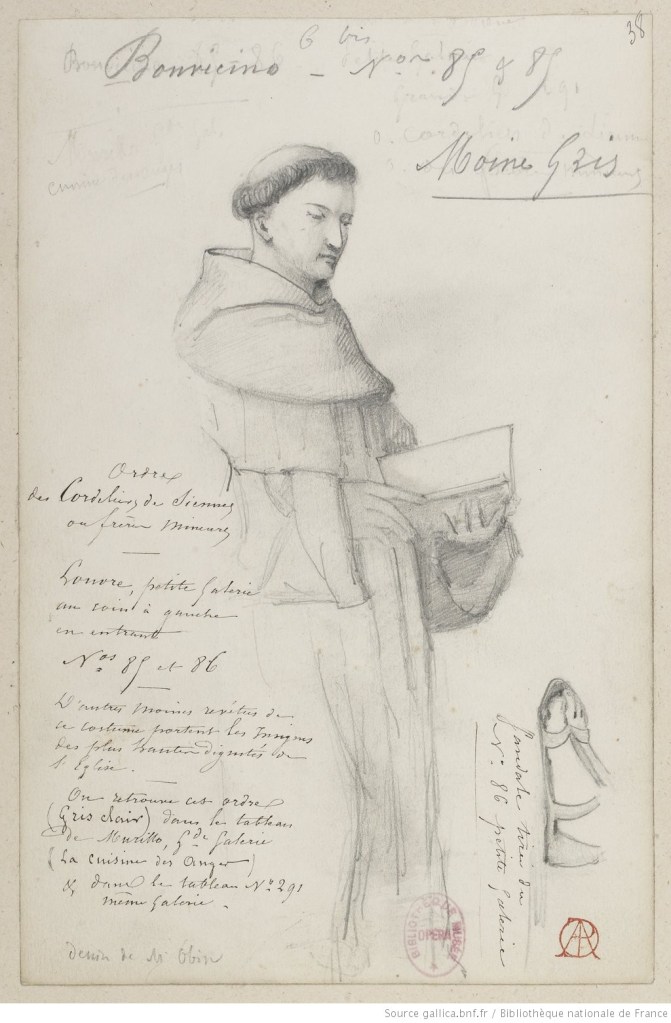 38
6 bis
Bonvicino - Nos 85 & 85
Moine Gris
Ordre
des Cordeliers de Siennes
ou frères Mineurs
Louvre, petite Galerie
au coin à gauche
en entrant
Nos 85 et 86
D'autres Moines revêtus de
ce costume portent les Insignes
des plus hautes dignités de
l'église.
On retrouve cet ordre
(Gris clair) dans le tableau
de Murillo, Gde Galerie
(La cuisine des Anges)
& dans le tableau No 291
même Galerie.
Sandale tirée du
No 86 petite Galerie
BIBLIOT. DE
OPERA
dessin de Mr
Source gallica.bnf.fr / Bibliothèque nationale de France